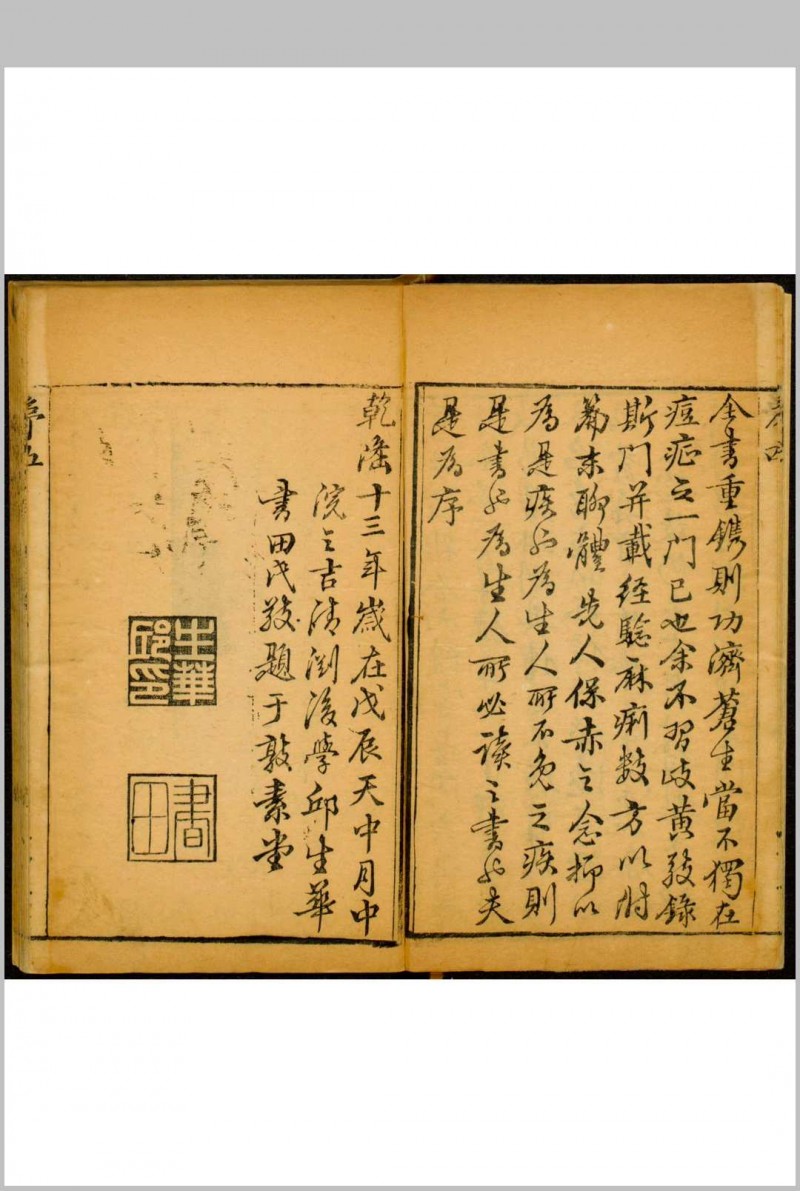 序四
全書重鐫則功濟蒼生當不獨在
痘疹之一門已也余不習岐黃敬錄
斯門并載經驗麻痢數方以附
篇末聊體先人保赤之念抑以
為是疾為生人所不免之疾則
是書為生人所必讀之書夫
是為序
乾隆十三年歲在戊辰天中月中
浣之吉清淵後學邱生華
書田氏敬題于敦素堂
生華
邱印
書
田
序五